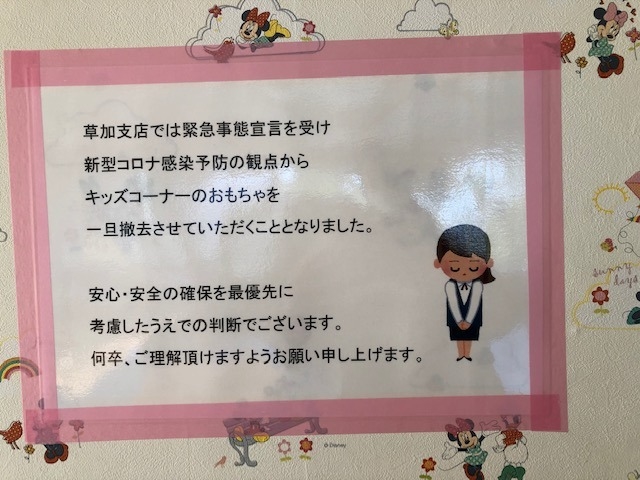 草加支店では緊急事態宣言を受け
新型コロナ感染予防の観点から
キッズコーナーのおもちゃを
一旦撤去させていただくこととなりました。
安心・安全の確保を最優先に
考慮したうえでの判断でございます。
何卒、ご理解頂けますようお願い申し上げます。
sunny
days
© Disney